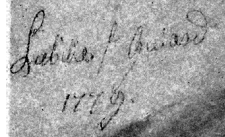 Labille f. Guiard
1779.